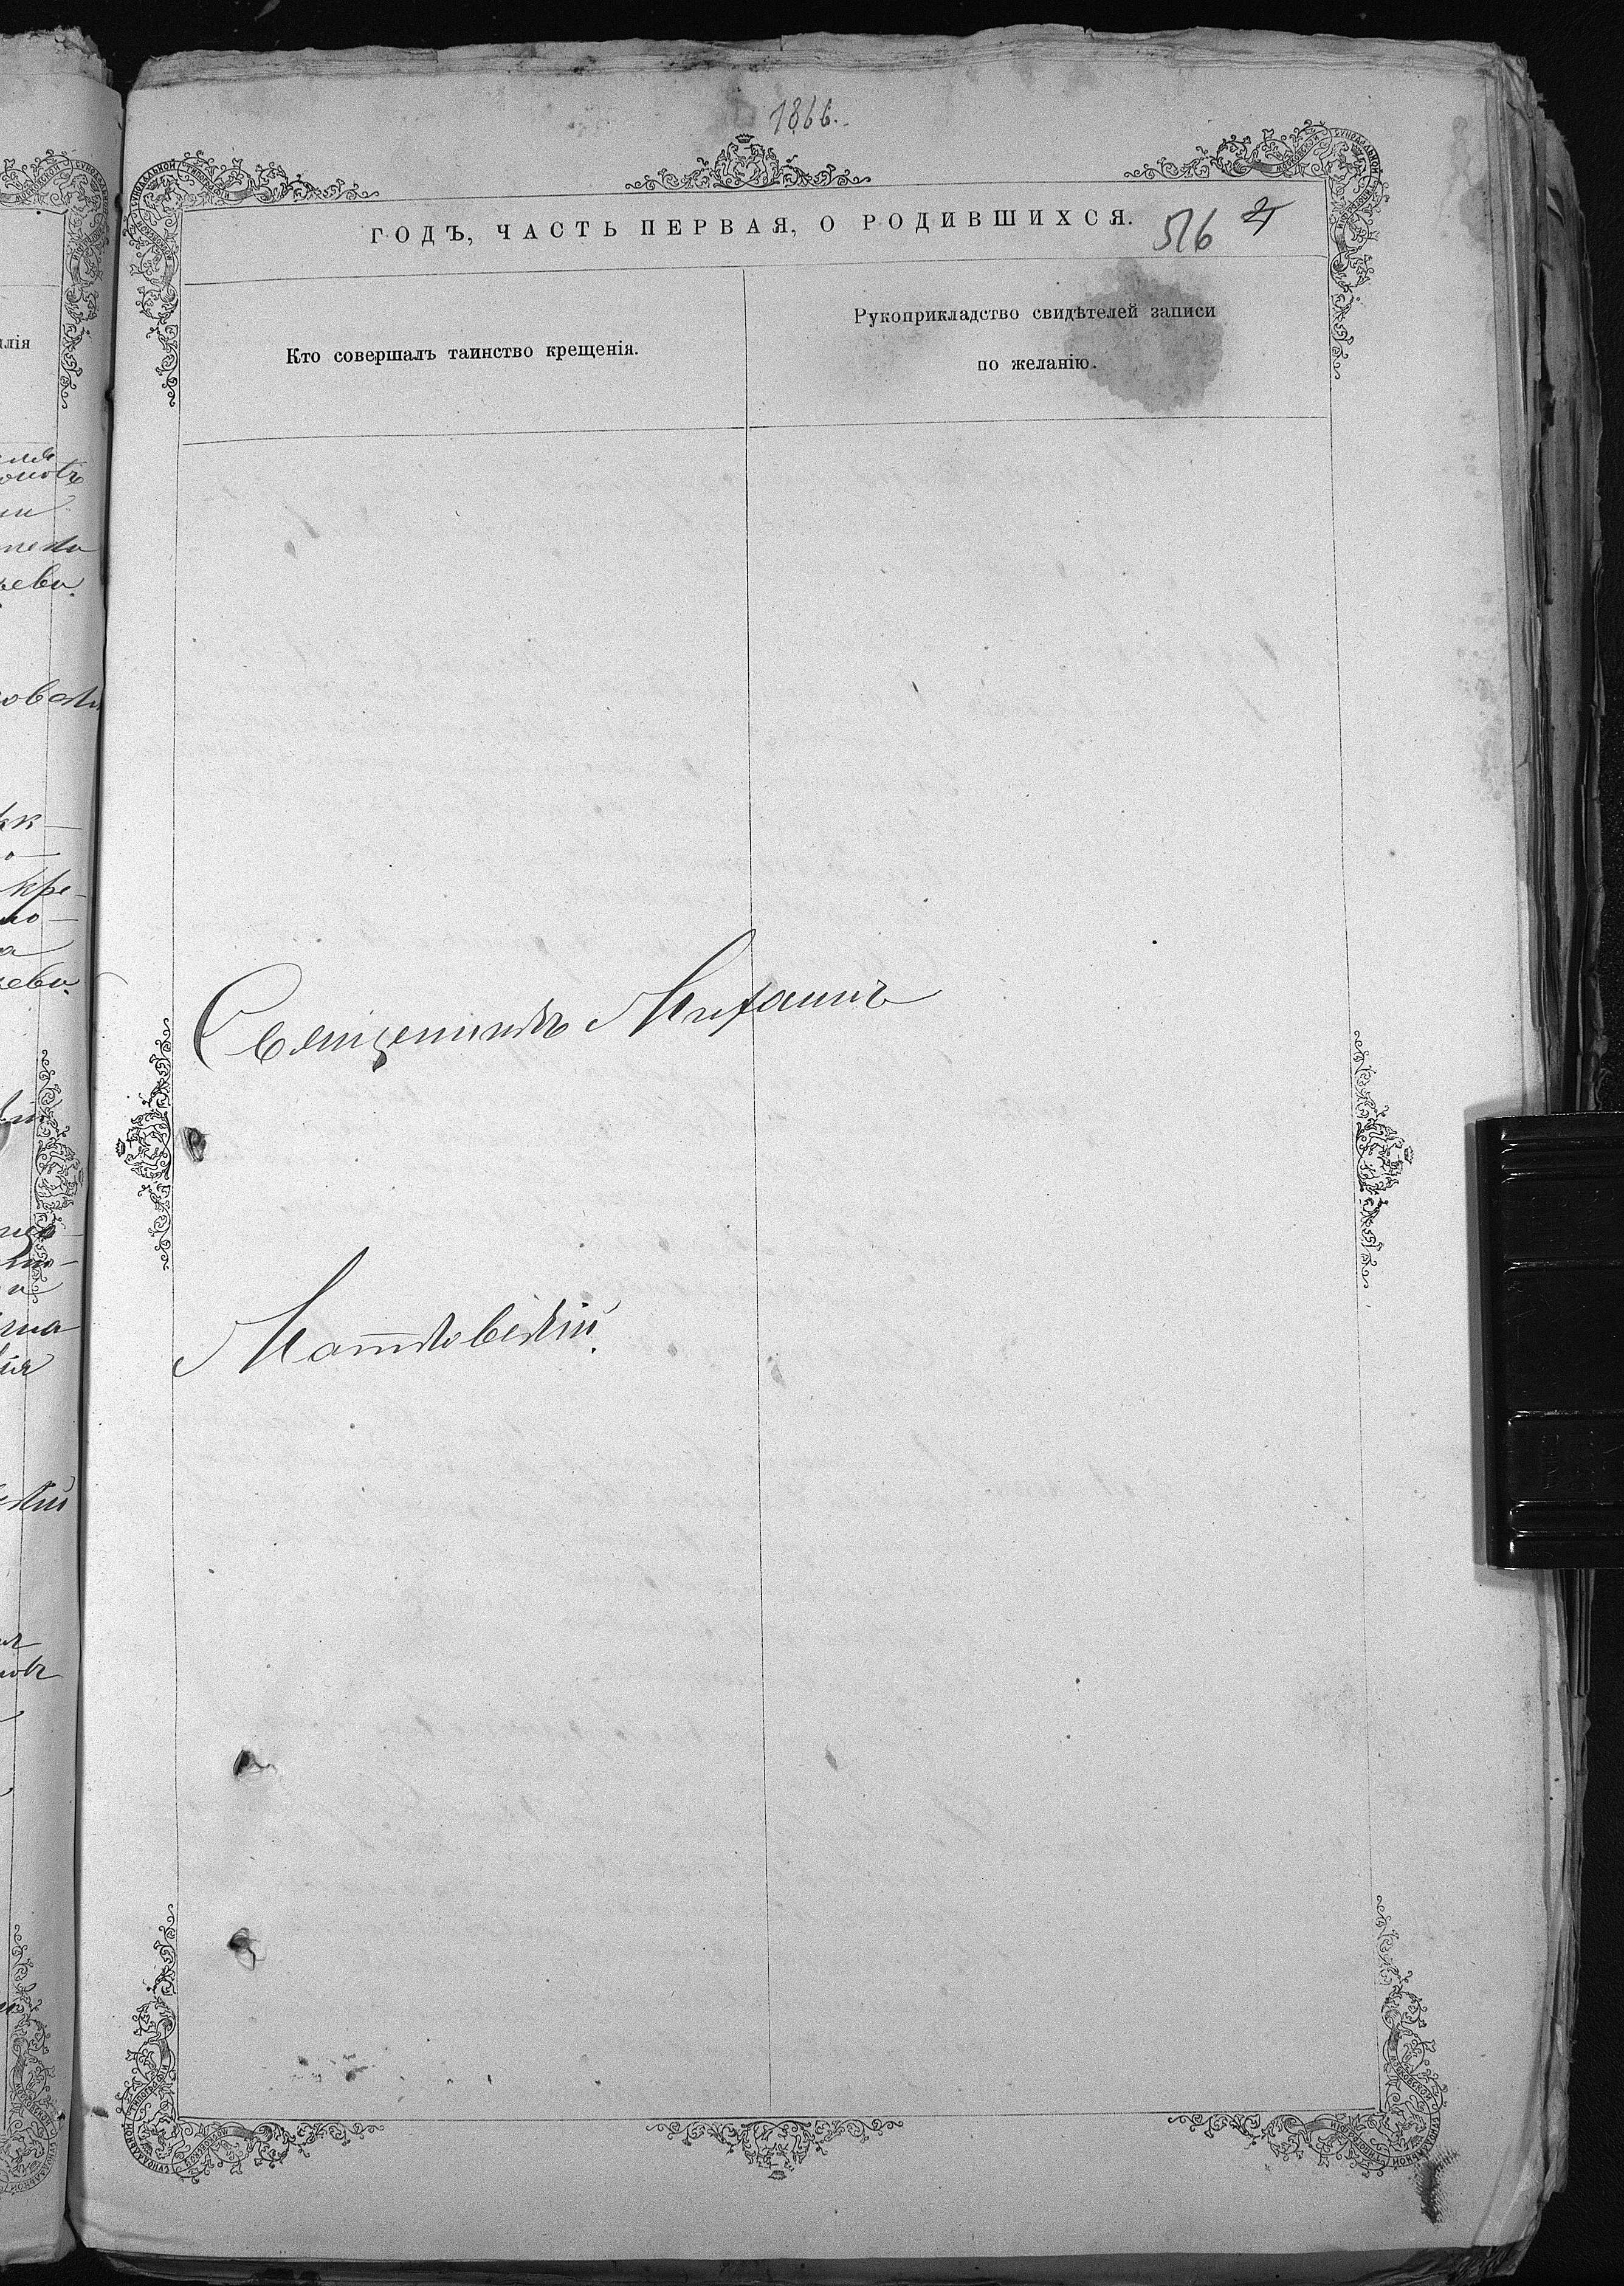 1866.
ГОДЪ, ЧАСТЬ ПЕРВАЯ, О РОДИВШИХСЯ.
516
Кто совершалъ таинство крещенія.
Рукоприкладство свидѣтелей записи
по желанію.
Священникъ Михаилъ
Матковскій.